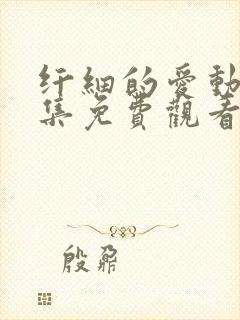 纤細的愛動
集免費觀看
殷鼐